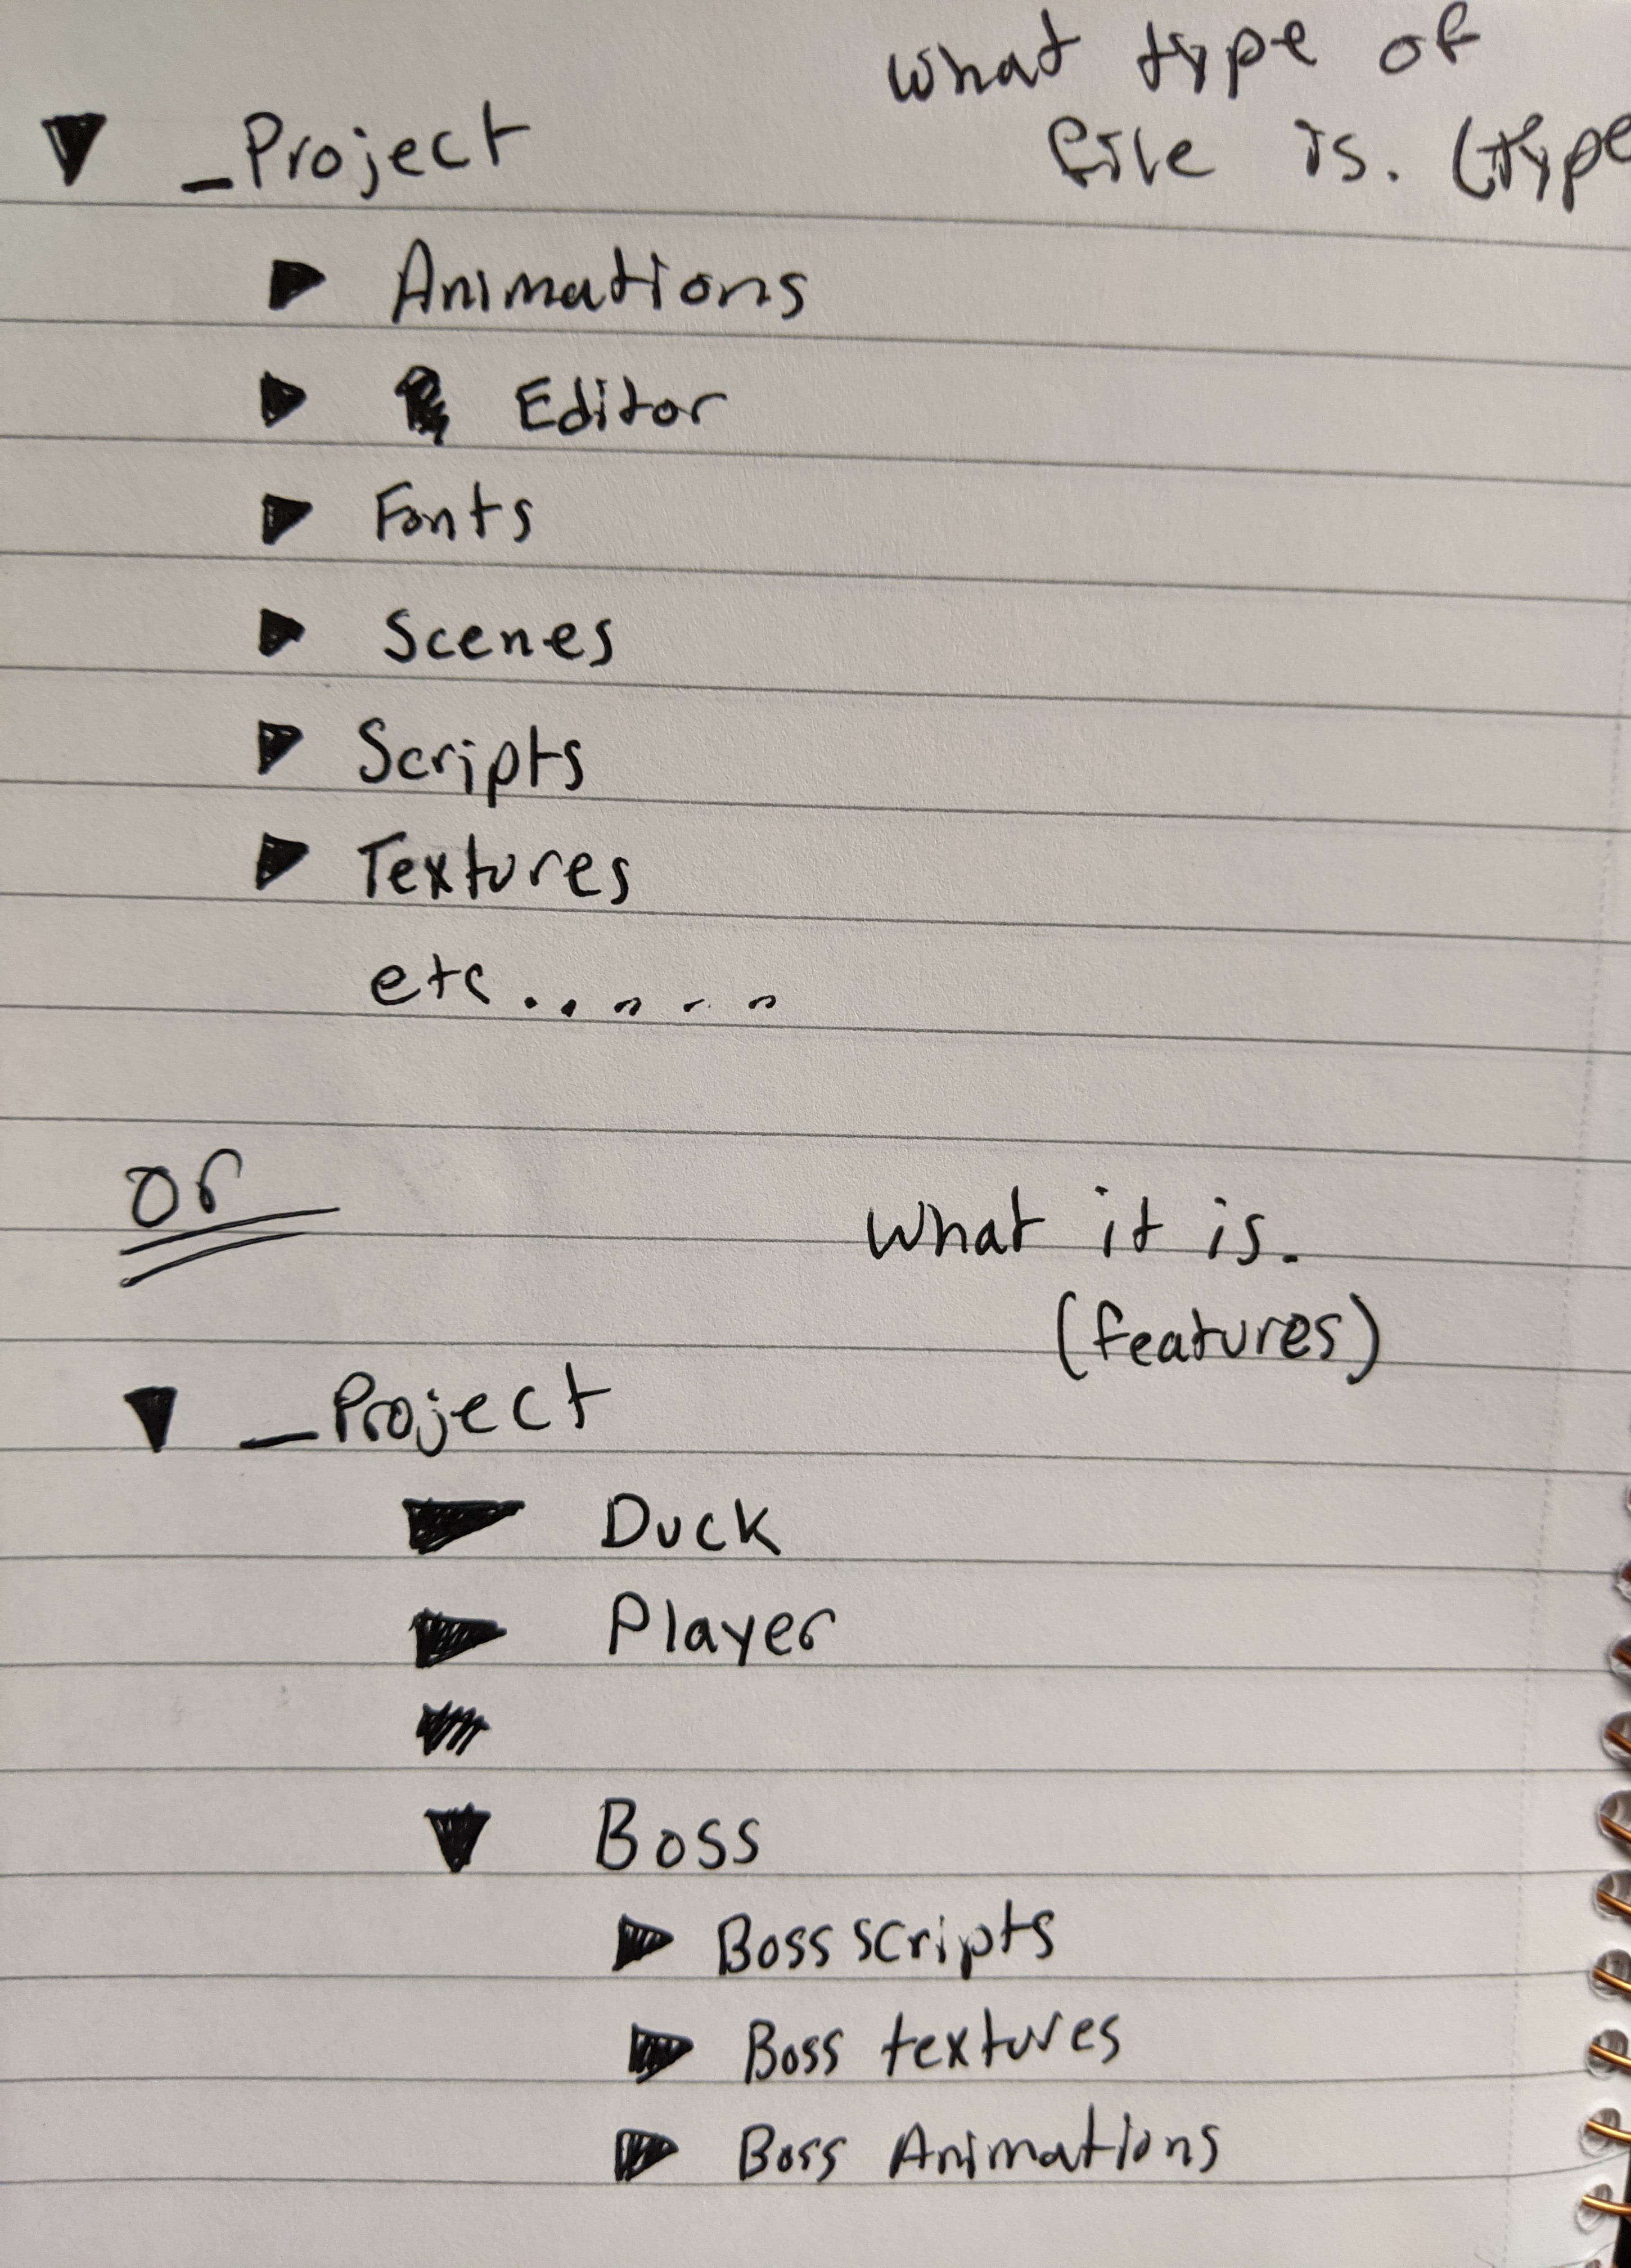 What type of
file is. (type
▼ _Project
▶ Animations
▶ Editor
▶ Fonts
▶ Scenes
▶ Scripts
▶ Textures
etc......
or
What it is.
(features)
▼ _Project
▶ Duck
▶ Player
▼ Boss
▶ Boss scripts
▶ Boss textures
▶ Boss Animations